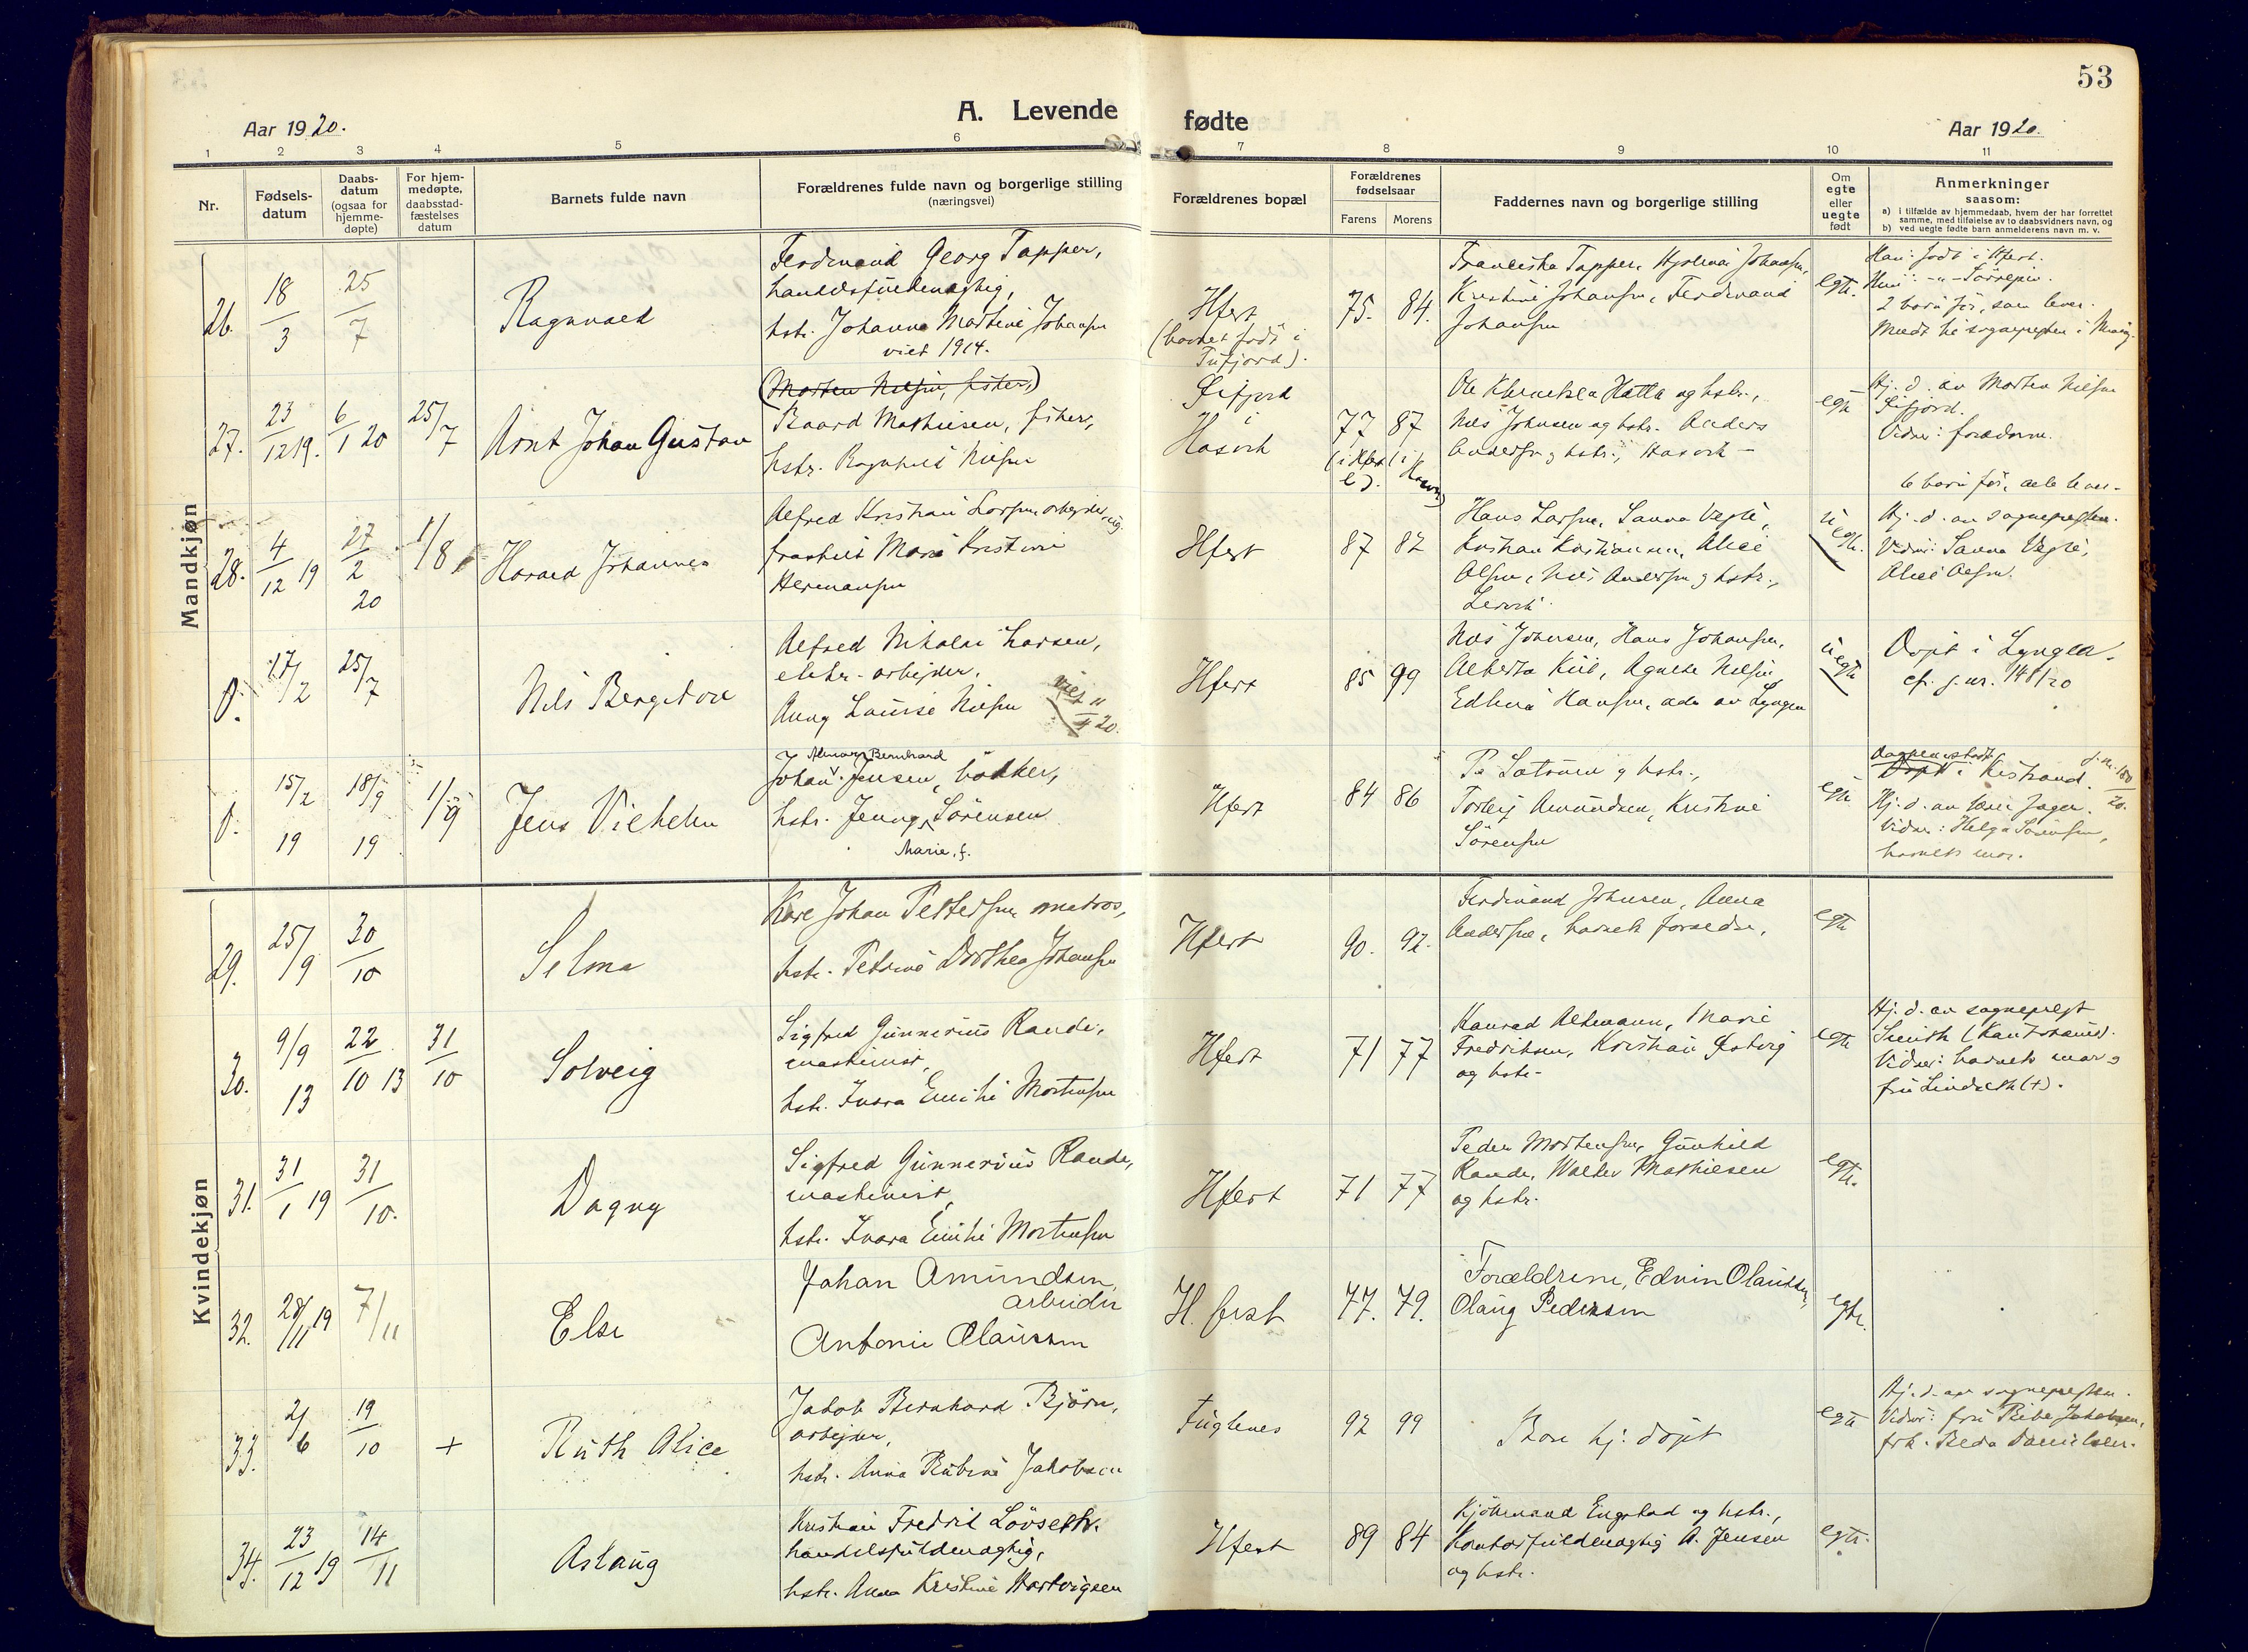 53
A. Levende fødte
Aar 1920.
Aar 1920.
1 2 3 4 5 6 7 8 9 10 11
Nr.
Fødsels-
datum
Daabs-
datum
(ogsaa for
hjemme-
døpte)
For hjem-
medøpte,
daabsstad-
fæstelses
datum
Barnets fulde navn
Forældrenes fulde navn og borgerlige stilling
(næringsvei)
Forældrenes bopæl
Forældrenes
fødselsaar
Farens Morens
Faddernes navn og borgerlige stilling
Om
egte
eller
uegte
født
Anmerkninger
saasom:
a) i tilfælde av hjemmedaab, hvem der har forrettet
samme, med tilføielse av to daabsvidners navn, og
b) ved uegte fødte barn anmelderens navn m. v.
Mandkjøn
26.
18/3
25/7
Ragnvald
Ferdinand Georg Tapper,
handelsfuldmægtig,
hstr. Johanna Martine Johansen
viet 1914.
Hfest
(barnet født i
Tufjord).
75. 84.
Johansen, Ferdinand
Johansen
egte.
Han: født i Hfest.
2 barn før, som lever.
27.
23/12 19.
6/1 20
25/7
Arnt Johan Gustav
(Morten Nilsen, fisker,)
Baard Mathisen, fisker,
hstr. Ragnhild Nilsen
Hasvik
77 87
Nils Johnsen og hstr. Anders
Andersen og hstr., Hasvik
egte
Hj. d. av Morten Nilsen
Vidner: forældrene.
6 barn før, alle lever.
28.
4/12 19
27/2 20
1/8
Harald Johannes
Alfred Kristian Larsen, arbeider, ug.
fraskilt Marie Kristine
Hermansen
Hfest
87 82
Hans Larsen, Sanna Vegte,
Kristian Kristiansen, Alice
Olsen, Nils Andersen og hstr.,
uegte.
Hj. d. av sognepresten.
Vidner: Sanna Vegte,
Alice Olsen.
0.
17/2
25/7
Nils Bergiton
Alfred Nikolai Larsen,
elektr. arbeider,
Anny Louise Nilsen
Hfest
85 99
Nils Johnsen, Hans Johansen,
Alberta Kiil, Agnete Nilsen,
Hansen, alle av Lyngen
uegte
Døpt i Lyngen.
cf. j. nr. 148/20
0.
15/2 19
18/9 19
1/9
Jens Vilhelm
Almar Bernhard
Johan Jensen, bøkker,
hstr. Jenny Sørensen
Marie, f.
Hfest
84 86
og hstr.,
Torleif Amundsen, Kristine
Sørensen
egte
i Kistrand.
Hj. d. av lærer Jager.
Vidner: Helga Sørensen,
barnets mor.
Kvindekjøn
29.
25/9
30/10
Selma
Karl Johan Pettersen, matros,
hstr. Petrine Dorthea Johansen
Hfest
90. 92.
Ferdinand Johnsen, Anna
Andersen, barnets forældre.
egte
30.
9/9 13
22/10 13
31/10
Solveig
Sigfred Gunnerius Rande,
maskinist,
hstr. Ivara Emilie Mortensen
Hfest
71 77
Konrad Altmann, Marie
Fredriksen, Kristian Østvig
og hstr.
egte
Hj. d. av sogneprest
Smith
Vidner: barnets mor og
fru Lindseth (+).
31.
31/1 19
31/10.
Dagny
Sigfred Gunnerius Rande,
maskinist,
hstr. Ivara Emilie Mortensen
Hfest
71 77
Peder Mortensen, Gunhild
Rande, Walter Mathiesen
og hstr.
egte.
32.
28/11 19
7/11
Else
Johan Amundsen,
arbeider
Antonie Olaussen
H. fest
77. 79.
Forældrene, Edvin Olaussen,
Olaug Pedersen
egte.
33.
2/6
19/10
+
Ruth Alice
Jakob Bernhard Bjørn,
arbeider,
hstr. Anna Rubine Jakobsen
Fuglenes
92 99
Bare hj. døpt
egte
Hj. d. av sognepresten.
Vidner: fru Jakobsen,
frk. Beda Danielsen.
34.
23/12 19
14/11
Aslaug
Kristian Fredrik Løvseth,
handelsfuldmægtig,
hstr. Anna Kristine Hartvigsen
Hfest
89 84
Kjøbmand Engstad og hstr.,
Kontorfuldmægtig A. Jensen
og hstr.
egte.